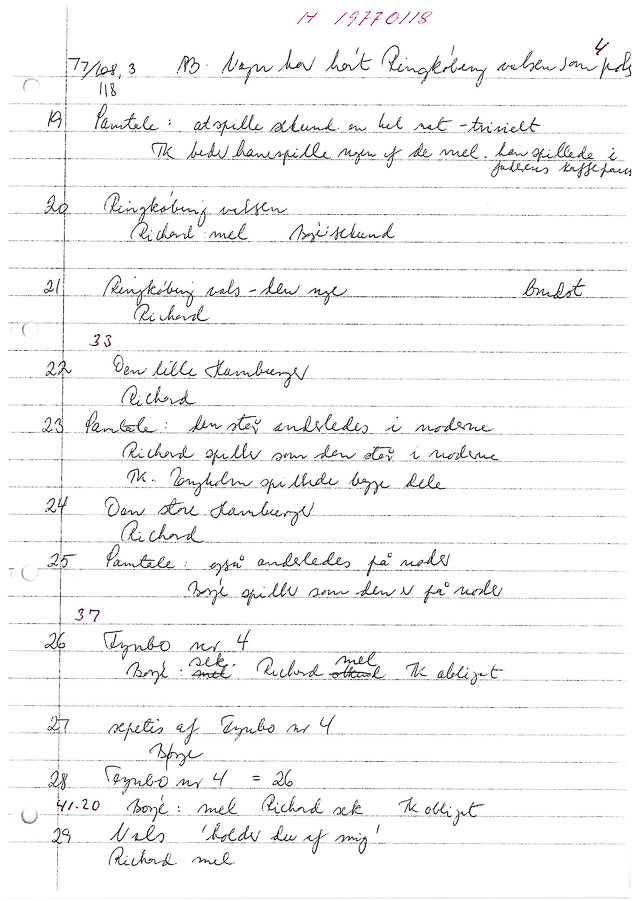 H 19770118
77/108, 3 NB. Vagn har hørt Ringkøbing valsen som 4 pols
118
19 Påmtale: at spille sekund en hel nat - trivielt
TK beder ham spille nogen af de mel. han spillede i
kaffepaus
20 Ringkøbing valsen
Richard mel Børje sekund
21 Ringkøbing vals - den nye brudst
Richard
33
22 Den lille Hamburger
Richard
23 Påmtale: den står anderledes i noderne
Richard spiller som den står i noderne
TK. spillede begge dele
24 Den store Hamburger
Richard
25 Påmtale: også anderledes på noder
Børje spiller som den er på noder
37
26 Fynbo nr 4
Børje: sek. mel Richard mel sekund TK obligat
27 repetis af Fynbo nr 4
Børje
28 Fynbo nr 4 = 26
41.20 Børje: mel Richard sek TK obligat
29 Vals 'holder du af mig'
Richard mel